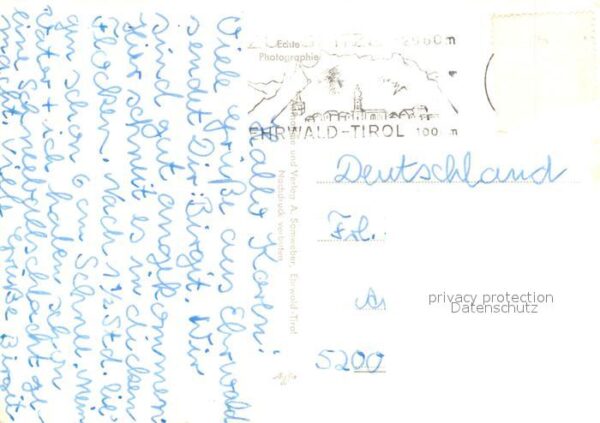 Hallo Karen!
Viele Grüße aus Ehrwald
sendet Dir Birgit. Wir
sind gut angekommen.
Hier schneit es in dicken
Flocken. Nach 1½ Std. lie-
gen schon 6 cm Schnee. Mein
Vater + ich haben schon
eine Schneeballschlacht ge-
macht. Viele Grüße Birgit
Echte
Photographie
2960m
EHRWALD-TIROL 100 m
und Verlag A. Somweber, Ehrwald-Tirol
Nachdruck verboten
Deutschland
Frl.
5200
privacy protection
Datenschutz